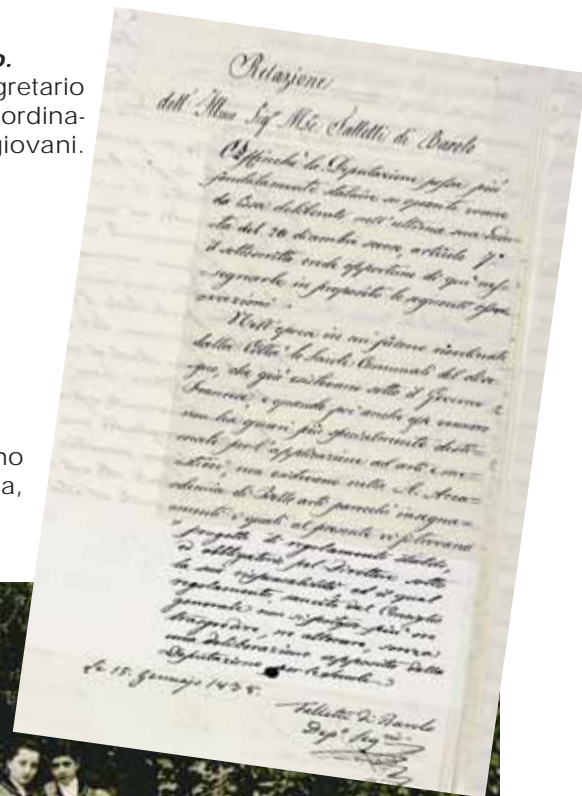 o.
gretario
ordina-
giovani.
no
a,
Relazione
dell' Illmo Sig. Mse Falletti di Barolo
Affinchè la Deputazione possa più
fondatamente statuire su quanto venne
da Essa deliberato nell'ultima sua
del 28 dicembre articolo 7.°
il sottoscritto crede opportuno di qui
segnarle in proposito le seguenti
Nell'epoca in cui furono riordinate
dalla Città le Scuole Comunali del
che già esistevano sotto il Governo
Francese, e quando poi anche
per l'applicazione ad arti e me-
stieri, ma esistevano nella R. Acca-
demia di Belle arti parecchi insegna-
menti i quali al presente
progetto di regolamento stabile,
e obbligatorio pel Direttore sotto
la sua risponsabilità, ed il qual
regolamento sancito dal Consiglio
generale non si possa più nè
trasgredire, nè alterare, senza
una deliberazione apposita della
Deputazione per le scuole.
Li 15. Gennajo 1838.
Falletti di Barolo